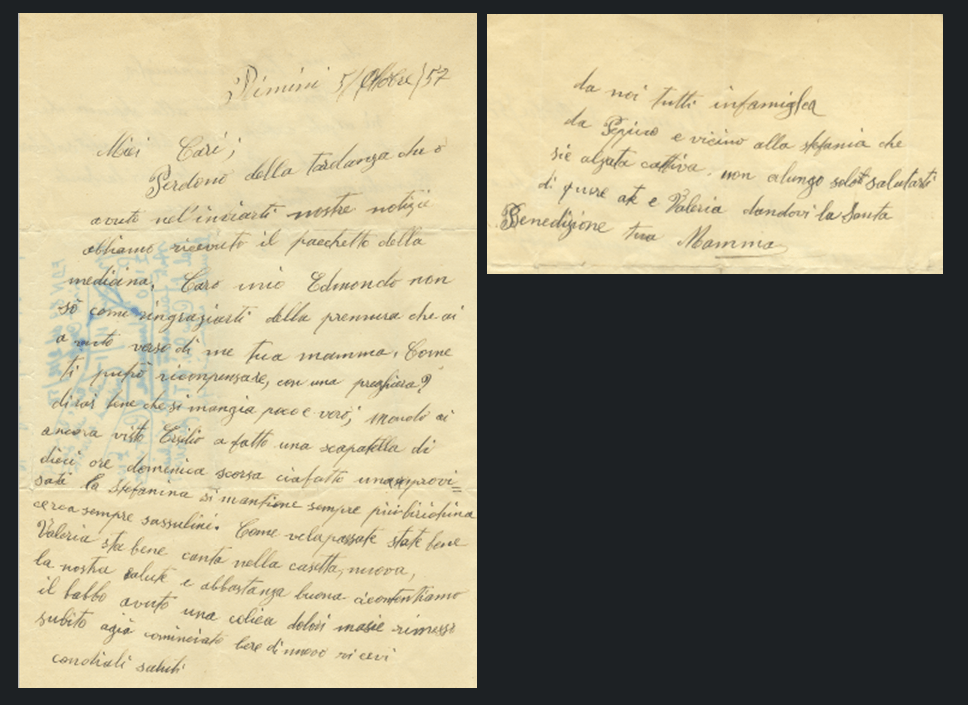 Rimini 5/Ottobre/57
Miei Cari;
Perdono della tardanza che ò
avuto nel'inviarti nostre notizie
abbiamo ricevuto il pacchetto della
medicina, Caro mio Edmondo non
sò come ringraziarti della premura che ai
avuto verso di me tua mamma. Come
ti può ricompensare, con una preghiera?
dirai bene che si mangia poco e vero; Mondo ai
ancora visto Ersilio a fatto una scapatella di
dieci ore domenica scorsa ciafatto
la Stefanina si mantiene sempre più birichina
cerca sempre sassulini. Come vela passate state bene
Valeria sta bene canta nella casetta, nuova,
la nostra salute e abbastanza buona ci contentiamo
il babbo avuto una colica dolori masie rimesso
subito agia cominciato bere di nuovo ricevi
condiali saluti
da noi tutti infamiglia
da Pepino e vicino alla stefania che
sie alzata cattiva, non alungo solo salutarti
di pure ate e Valeria dandovi la Santa
Benedizione tua Mamma